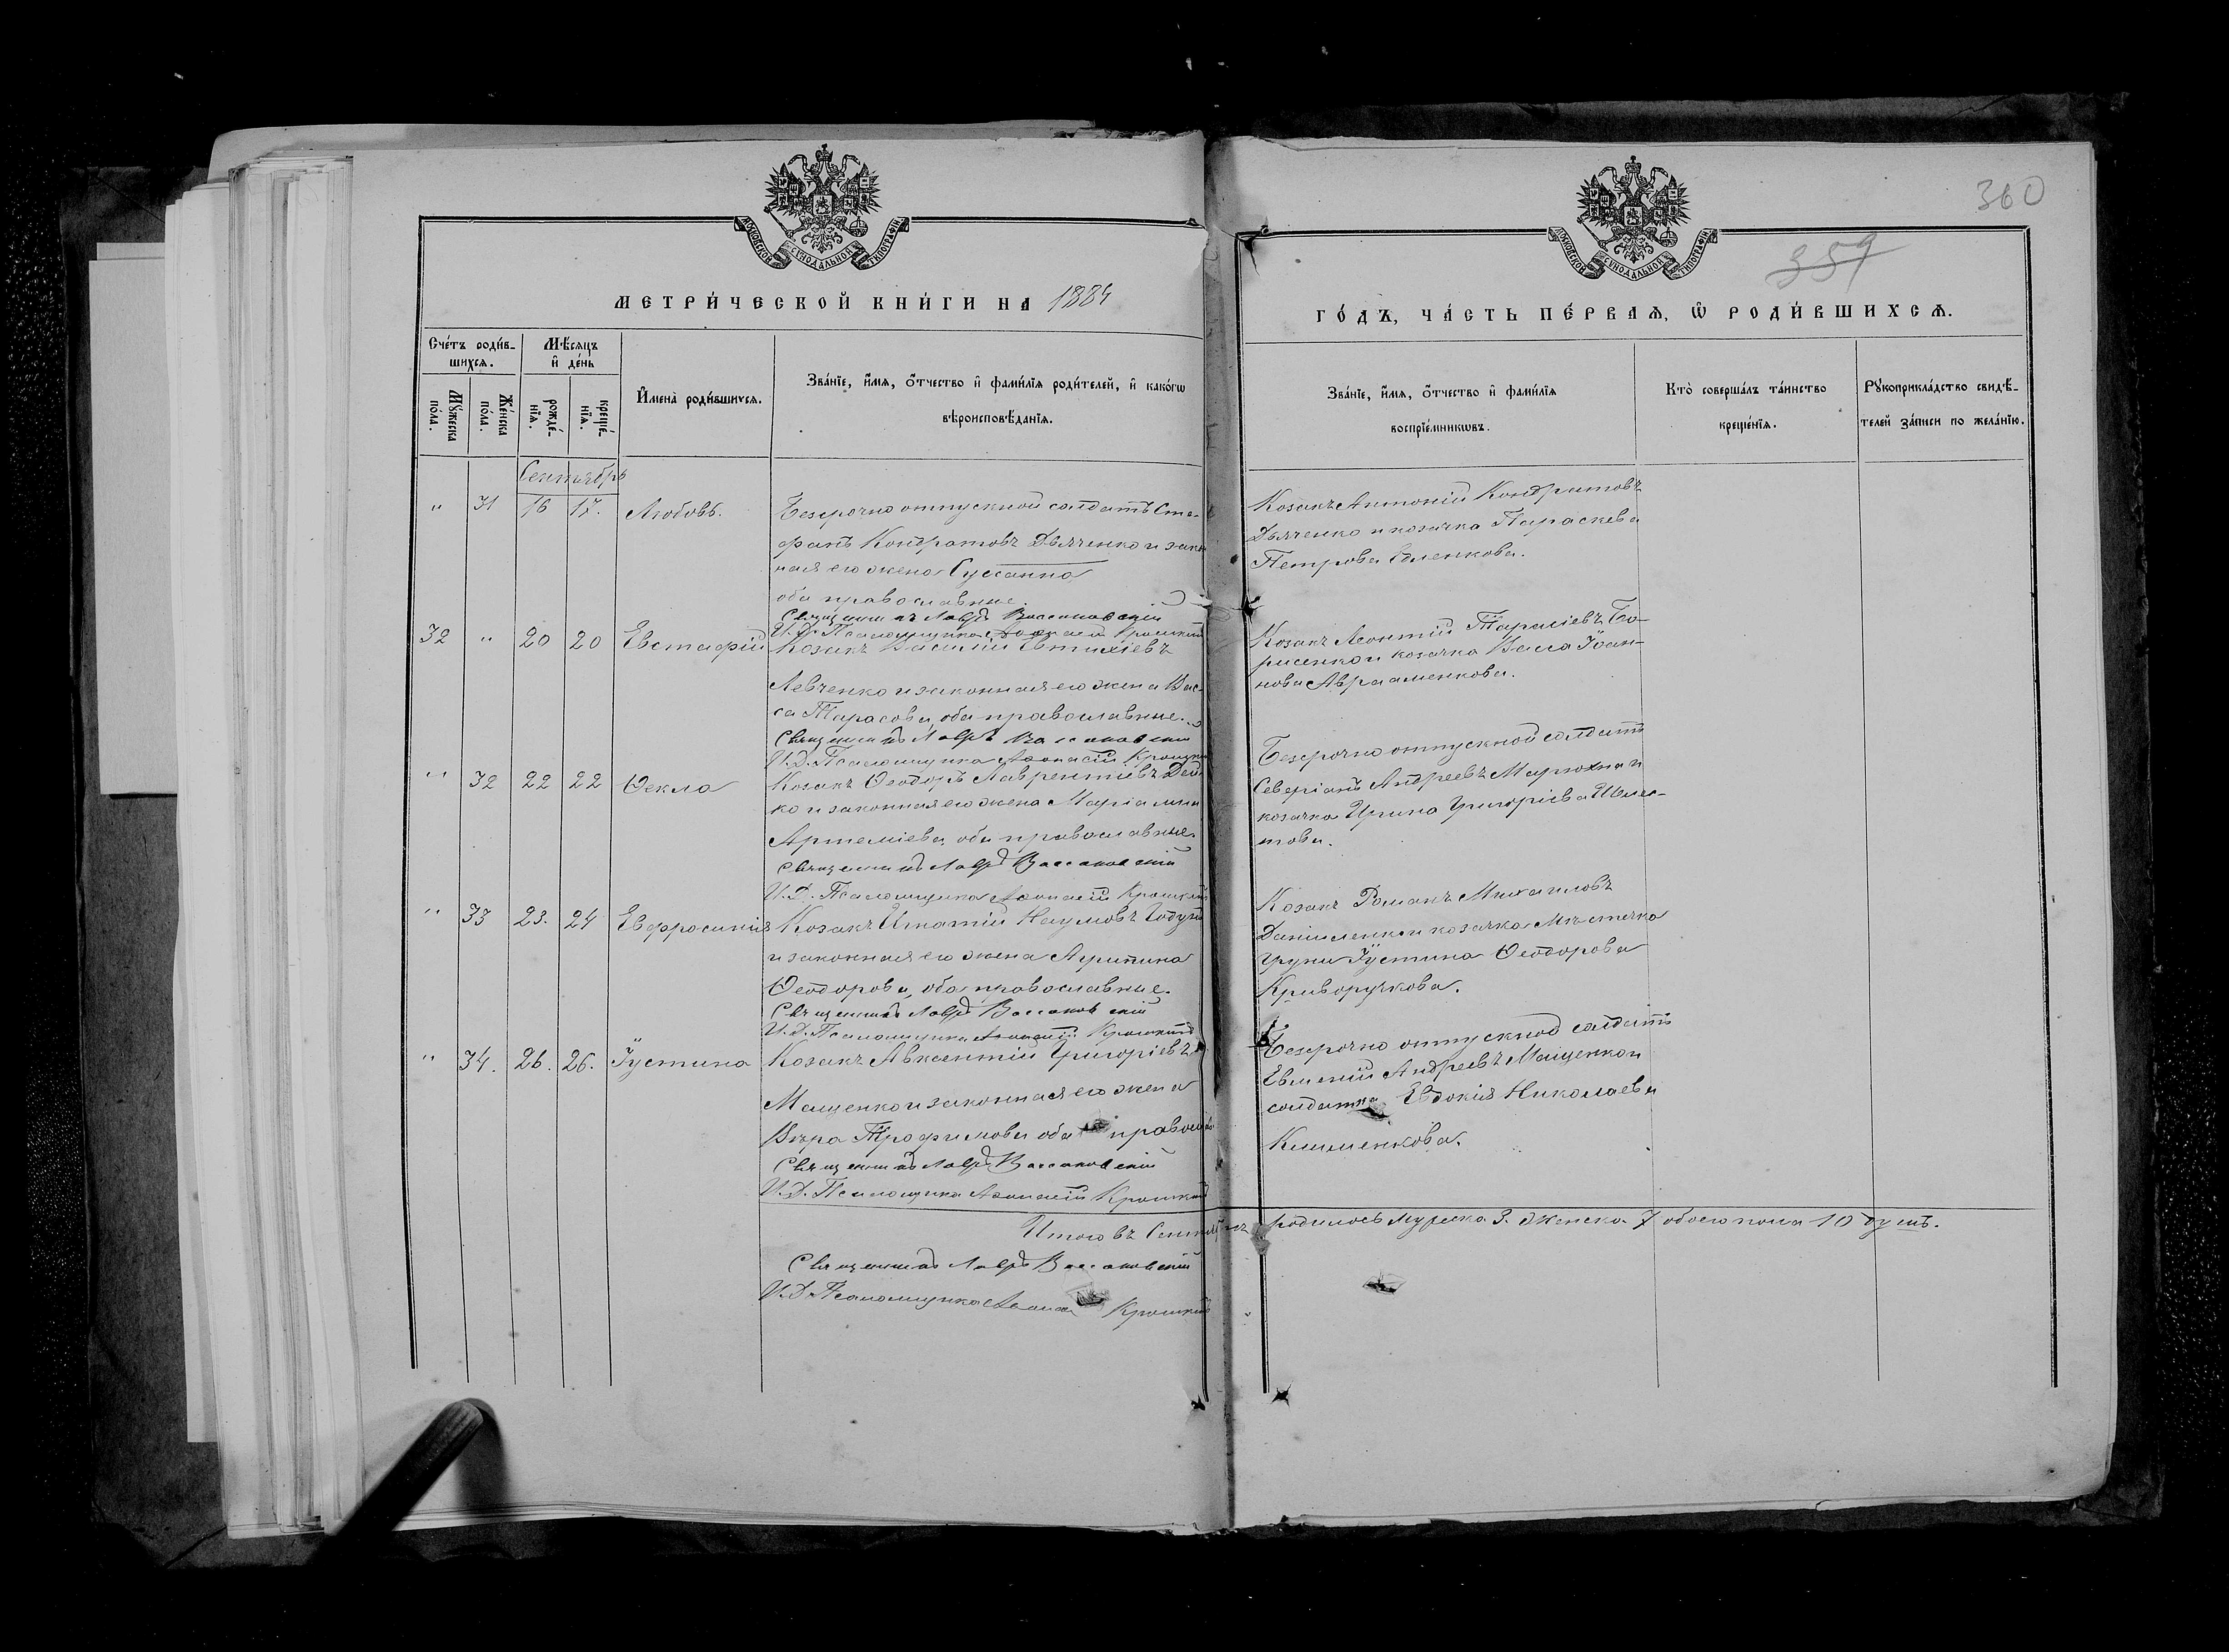 360
359
МОСКОВСКОЙ СѴНОДАЛЬНОЙ ТИПОГРАФІИ
МОСКОВСКОЙ СѴНОДАЛЬНОЙ ТИПОГРАФІИ
МЕТРИ́ЧЕСКОЙ КНИ́ГИ НА 1884
ГО́ДЪ, ЧА́СТЬ ПЕ́РВАѦ, Ѡ҆ РОДИ́ВШИХСѦ.
Сче́тъ роди́в-
шихсѧ.
Мꙋ́жеска по́ла.
Же́нска по́ла.
Мѣ́сѧцъ
и҆ де́нь
рожде́-
нїѧ.
креще́-
нїѧ.
И҆мена̀ роди́вшихсѧ.
Зва́нїе, и҆́мѧ, ѻ҆́тчество и҆ фами́лїѧ роди́телей, и҆ како́гѡ
вѣроисповѣ́данїѧ.
Зва́нїе, и҆́мѧ, ѻ҆́тчество и҆ фами́лїѧ
воспрїе́мникѡвъ.
Кто̀ соверша́лъ та́инство
креще́нїѧ.
Рꙋкоприкла́дство свидѣ́-
телей за́писи по жела́нїю.
Сентябрь
" 31 16 17. Любовь.
Безсрочно отпускной солдатъ Сте-
фанъ Кондратовъ Дьяченко и закон
ная его жена Сусанна
оба православные.
Священникъ Лавръ
И.Д. Псаломщика Афанасій
Козакъ Антоній Кондратовъ
Дьяченко и козачка Параскева
Петрова
32 " 20 20 Евстафій
Козакъ Василій Евтихіевъ
Левченко и законная его жена Вас-
са Тарасова, оба православные.
Священникъ Лавръ
И.Д. Псаломщика Афанасій
Козакъ Леонтій Тарасіевъ Бо-
рисенко и козачка Васса Іоан-
нова Авраменкова.
" 32 22 22 Ѳекла
Козакъ Ѳеодоръ Лаврентіевъ
ко и законная его жена Маріамна
Артеміева, оба православные.
Священникъ Лавръ
И.Д. Псаломщика Афанасій
Безсрочно отпускной солдатъ
Северіанъ Андреевъ и
козачка Ирина Григоріева Шелес-
това.
" 33 23. 24 Евфросинія
Козакъ Игнатій Наумовъ
и законная его жена Агрипина
Ѳеодорова, оба православные.
Священникъ Лавръ
И.Д. Псаломщика Афанасій
Козакъ Романъ Михаиловъ
Даниленко и козачка мѣстечка
Груни Іустина Ѳеодорова
Криворучкова.
" 34. 26. 26. Іустина
Козакъ Авксентій Григоріевъ
Мащенко и законная его жена
Вѣра Трофимова оба
Священникъ Лавръ
И.Д. Псаломщика Афанасій
Безсрочно отпускной солдатъ
Евгеній Андреевъ Мащенко и
солдатка Евдокія Николаева
Клименкова.
Итого въ Сентябрѣ родилось мужеска 3. женска 7 обоего пола 10 душъ.
Священникъ Лавръ
И.Д. Псаломщика